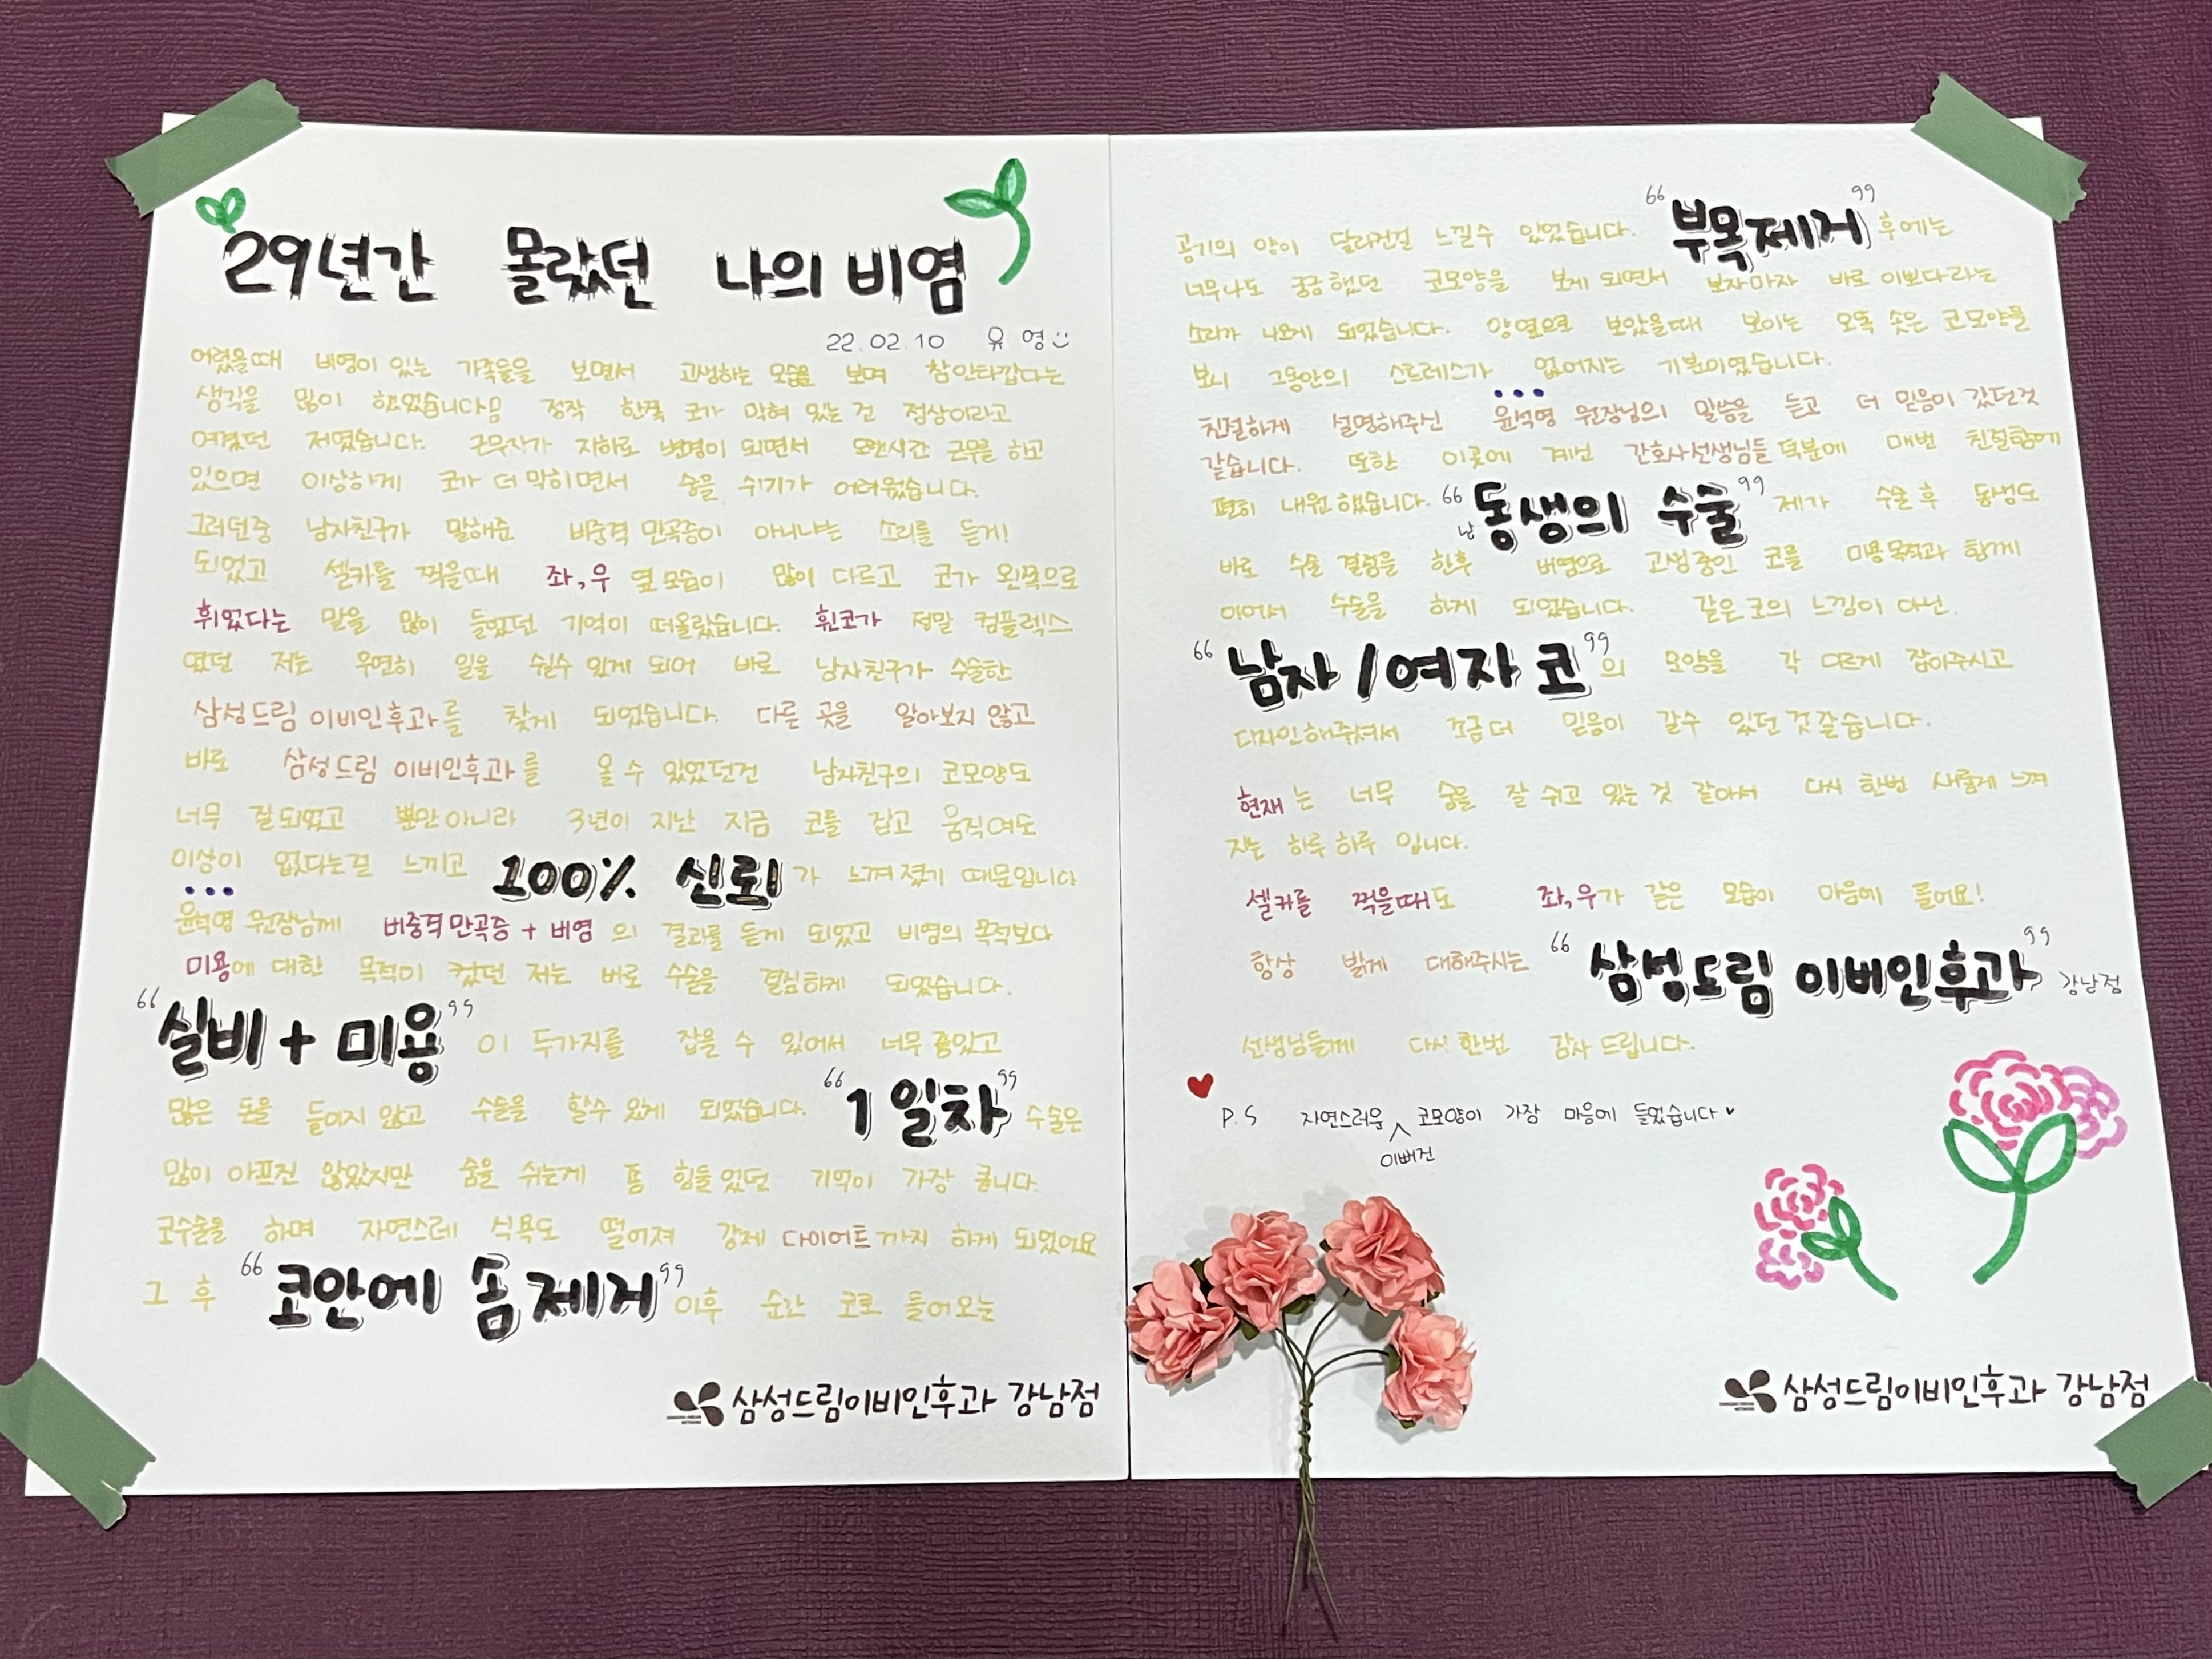 29년간 몰랐던 나의 비염
22.02.10 유영
어렸을때 비염이 있는 가족들을 보면서 고생하는 모습을 보며 참안타깝다는
생각을 많이 했었습니다 정작 한쪽 코가 막혀 있는 건 정상이라고
여겼던 저였습니다. 근무지가 지하로 변경이 되면서 오랜시간 근무를 하고
있으면 이상하게 코가 더 막히면서 숨을 쉬기가 어려웠습니다.
그러던중 남자친구가 말해준 비중격 만곡증이 아니냐는 소리를 듣게
되었고 셀카를 찍을때 좌,우 옆모습이 많이 다르고 코가 왼쪽으로
휘었다는 말을 많이 들었던 기억이 떠올랐습니다. 휜코가 정말 컴플렉스
였던 저는 우연히 일을 쉴수 있게 되어 바로 남자친구가 수술한
삼성드림 이비인후과를 찾게 되었습니다. 다른 곳을 알아보지 않고
바로 삼성드림 이비인후과를 올 수 있었던건 남자친구의 코모양도
너무 잘되었고 뿐만아니라 3년이 지난 지금 코를 잡고 움직여도
이상이 없다는걸 느끼고 100% 신뢰가 느껴졌기 때문입니다
윤석영 원장님께 비중격만곡증 + 비염의 결과를 듣게 되었고 비염의 목적보다
미용에 대한 목적이 컸던 저는 바로 수술을 결심하게 되었습니다.
"실비 + 미용" 이 두가지를 잡을 수 있어서 너무 좋았고
많은 돈을 들이지 않고 수술을 할수 있게 되었습니다. "1일차" 수술은
많이 아프진 않았지만 숨을 쉬는게 좀 힘들었던 기억이 가장 큽니다.
코수술을 하며 자연스레 식욕도 떨어져 강제 다이어트까지 하게 되었어요
그 후 "코안에 솜제거" 이후 순간 코로 들어오는
삼성드림이비인후과 강남점
공기의 양이 달라진걸 느낄수 있었습니다. "부목제거" 후에는
너무나도 궁금했던 코모양을 보게 되면서 보자마자 바로 이쁘다라는
소리가 나오게 되었습니다. 양옆으로 보았을때 보이는 오똑 솟은 코모양을
보니 그동안의 스트레스가 없어지는 기분이였습니다.
친절하게 설명해주신 윤석영 원장님의 말씀을 듣고 더 믿음이 갔던것
같습니다. 또한 이곳에 계신 간호사선생님들 덕분에 매번 친절함에
편히 내원했습니다. "남동생의 수술" 제가 수술 후 동생도
바로 수술 결정을 한후 비염으로 고생중인 코를 미용목적과 함께
이어서 수술을 하게 되었습니다. 같은 코의 느낌이 아닌.
"남자/여자 코"의 모양을 각 다르게 잡아주시고
디자인해주셔서 조금더 믿음이 갈수 있던 것같습니다.
현재는 너무 숨을 잘 쉬고 있는 것 같아서 다시 한번 새롭게 느껴
지는 하루하루 입니다.
셀카를 찍을때도 좌,우가 같은 모습이 마음에 들어요!
항상 밝게 대해주시는 "삼성드림 이비인후과" 강남점
선생님들께 다시 한번 감사 드립니다.
P.S 자연스러운 이뻐진 코모양이 가장 마음에 들었습니다
삼성드림이비인후과 강남점